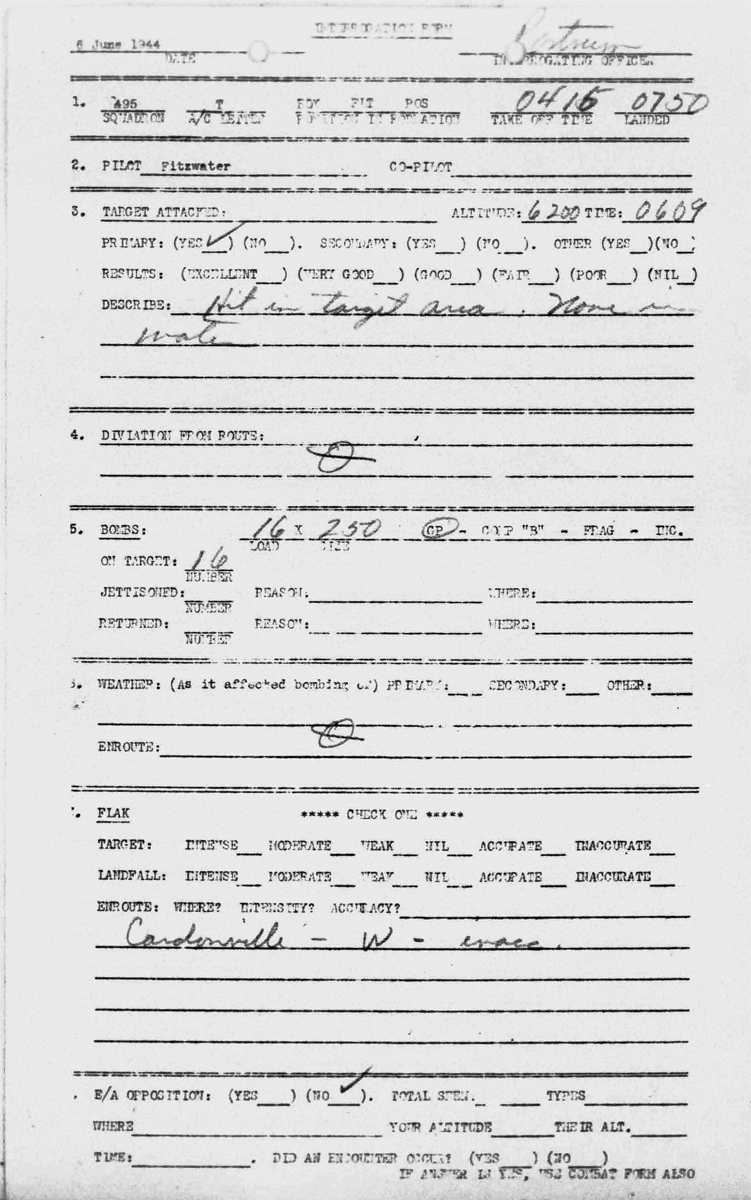 INTERROGATION FORM
6 June 1944
DATE INTERROGATING OFFICER
1. 495 T BOX FIT POS 0415 0750
SQUADRON A/C LETTER POSITION IN FORMATION TAKE OFF TIME LANDED
2. PILOT Fitzwater CO-PILOT
3. TARGET ATTACKED: ALTITUDE: 6200 TIME: 0609
PRIMARY: (YES ✓) (NO ). SECONDARY: (YES ) (NO ). OTHER (YES )(NO )
RESULTS: (EXCELLENT ) (VERY GOOD ) (GOOD ) (FAIR ) (POOR ) (NIL )
DESCRIBE: Hit in target area. None in
water
4. DIVIATION FROM ROUTE:
5. BOMBS: 16 X 250 GP - COMP "B" - FRAG - INC.
LOAD SIZE
ON TARGET: 16
NUMBER
JETTISONED: REASON: WHERE:
NUMBER
RETURNED: REASON: WHERE:
NUMBER
WEATHER: (As it affected bombing of) PRIMARY: SECONDARY: OTHER:
ENROUTE:
FLAK ***** CHECK ONE *****
TARGET: INTENSE MODERATE WEAK NIL ACCURATE INACCURATE
LANDFALL: INTENSE MODERATE WEAK NIL ACCURATE INACCURATE
ENROUTE: WHERE? INTENSITY? ACCURACY?
Cardonville - W - inacc.
E/A OPPOSITION: (YES ) (NO ✓). TOTAL SEEN. TYPES
WHERE YOUR ALTITUDE THEIR ALT.
TIME: . DID AN ENCOUNTER OCCUR? (YES ) (NO )
IF ANSWER IS YES, USE COMBAT FORM ALSO